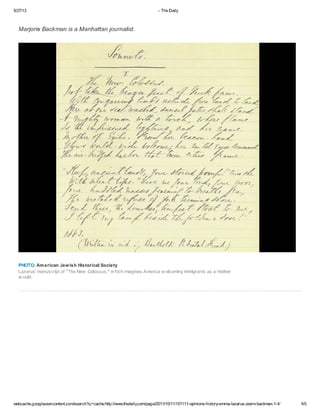 5/27/13
- The Daily
Marjorie Beckman is a Manhattan journalist.
Sonnets.
I
The New Colossus.
Not like the brazen giant of Greek fame
With conquering limbs astride from land to land
Here at our sea-washed, sunset gates shall stand
A mighty woman with a torch, whose flame
Is the imprisoned lightning, and her name
Mother of Exiles. From her beacon-hand
Glows world-wide welcome; her mild eyes command
The air-bridged harbor that twin cities frame.
"Keep, ancient lands, your storied pomp!" cries she
With silent lips. "Give me your tired, your poor,
Your huddled masses yearning to breathe free,
The wretched refuse of your teeming shore.
Send these, the homeless, tempest-tost to me,
I lift my lamp beside the golden door!"
1883.
(Written in aid of Bartholdi Pedestal Fund.)
PHOTO: American Jewish Historical Society
Lazarus' manuscript of "The New Colossus," which imagines America welcoming immigrants as a mother
would.
4/5